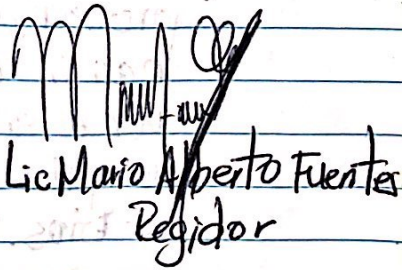 Lic Mario Alberto Fuentes
Regidor